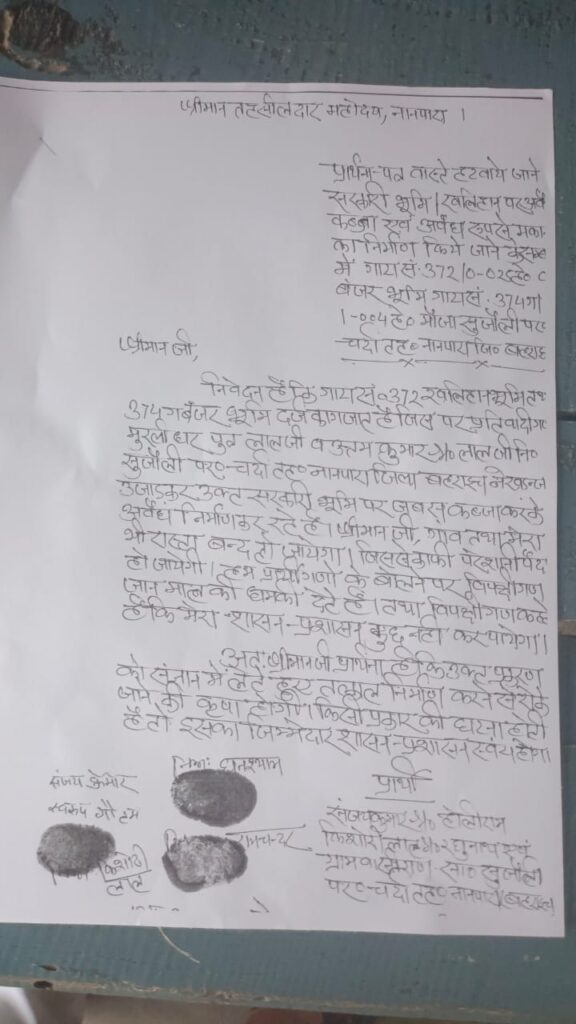 श्रीमान तहसीलदार महोदय, नानपारा ।
प्रार्थना-पत्र वास्ते हटवाये जाने
सरकारी भूमि / खलिहान पर अवै
कब्जा एवं अवैध रूप से मका
का निर्माण किये जाने के सम्ब
में गाटा सं. 372/0-026हे०
बंजर भूमि गाटा सं. 374
1-004हे० मौजा सुजौली पर०
चर्दा तह० नानपारा जि० बहराइ
श्रीमान जी,
निवेदन है कि गाटा सं० 372 खलिहान भूमि तथ
374 बंजर भूमि दर्ज कागजात है जिस पर प्रतिवादीगण
मुरली धर पुत्र लालजी व उत्तम कुमार S/o लालजी नि०
सुजौली पर०-चर्दा तह० नानपारा जिला बहराइच ने
उजाड़कर उक्त सरकारी भूमि पर जबरन कब्जा करके
अवैध निर्माण कर रहे हैं। श्रीमान जी, गांव तथा मेरा
भी रास्ता बन्द हो जायेगा। जिससे काफी परेशानी पैदा
हो जायेगी। हम प्रार्थीगणों के बोलने पर विपक्षीगण
जान माल की धमकी देते हैं। तथा विपक्षीगण कहते
है कि मेरा शासन-प्रशासन कुछ नहीं कर पायेगा।
अतः श्रीमान जी प्रार्थना है कि उक्त प्रकरण
को संज्ञान में लेते हुए तत्काल निर्माण करने से रोके
जाने की कृपा होगी। किसी प्रकार की घटना होती
है तो इसका जिम्मेदार शासन-प्रशासन स्वयं होगा।
प्रार्थी
संजय कुमार S/o होलीराम
किशोरी लाल S/o रघुनाथ एवं
ग्रामवासीगण सा० सुजौली
पर०-चर्दा तह० नानपारा
घनश्याम
संजय कुमार
स्वरूप गौतम
रामचन्दर
किशोरी
लाल